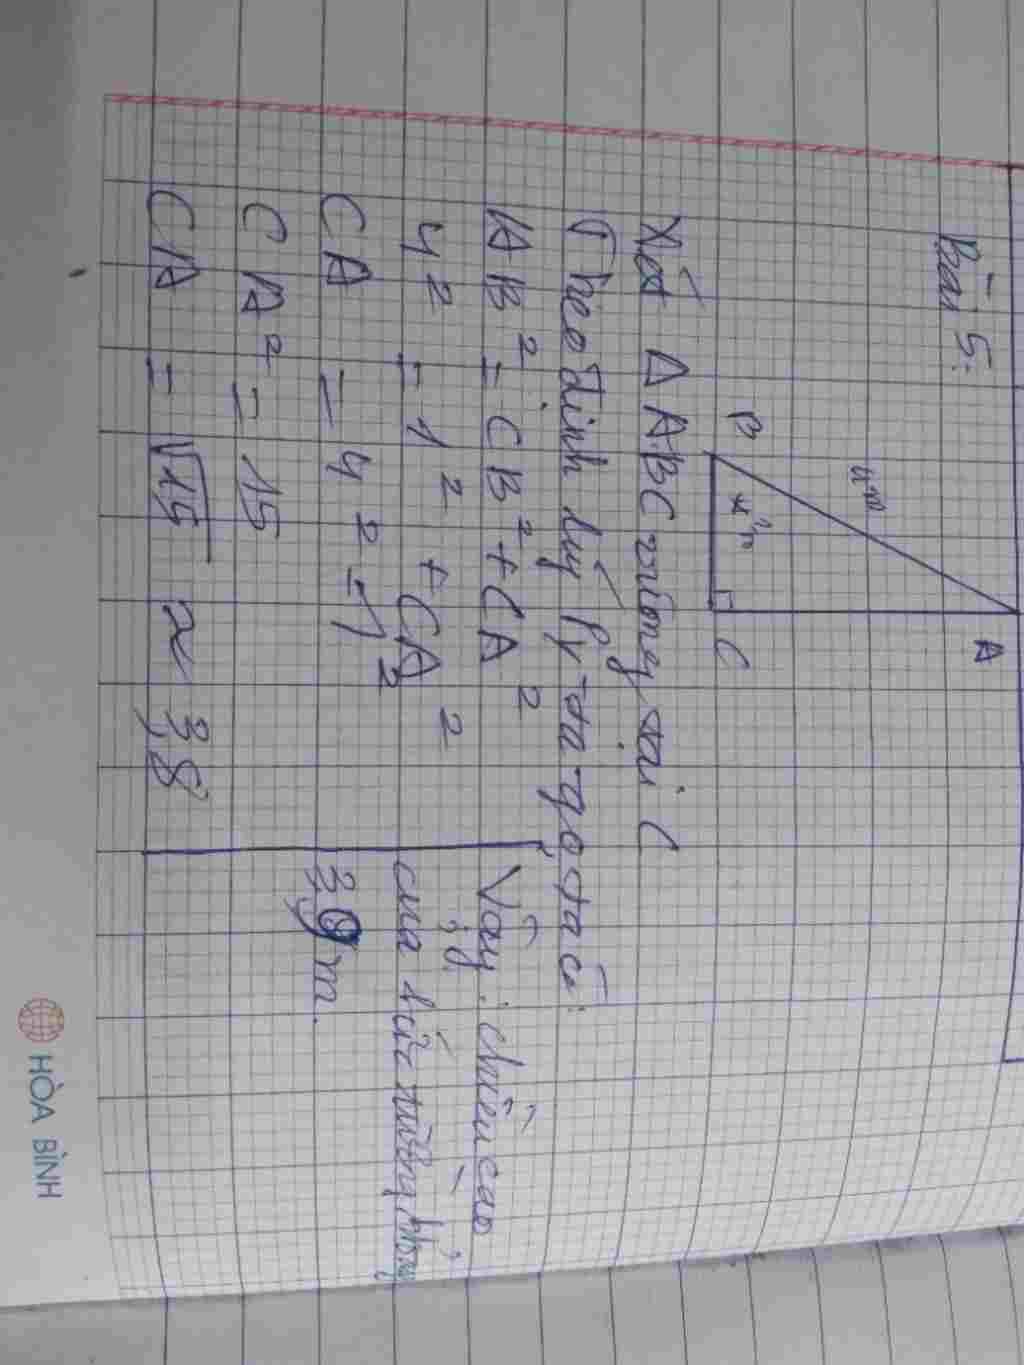 Bài 5:
A
4m
B
1m
C
Xét Δ ABC vuông tại C
Theo định lý Py-ta-go, ta có:
AB² = CB² + CA²
4² = 1² + CA²
CA = 4² - 1²
CA² = 15
CA = √15 ≈ 3,8
Vậy chiều cao
của bức tường khoảng
3,9 m.
HÒA BÌNH